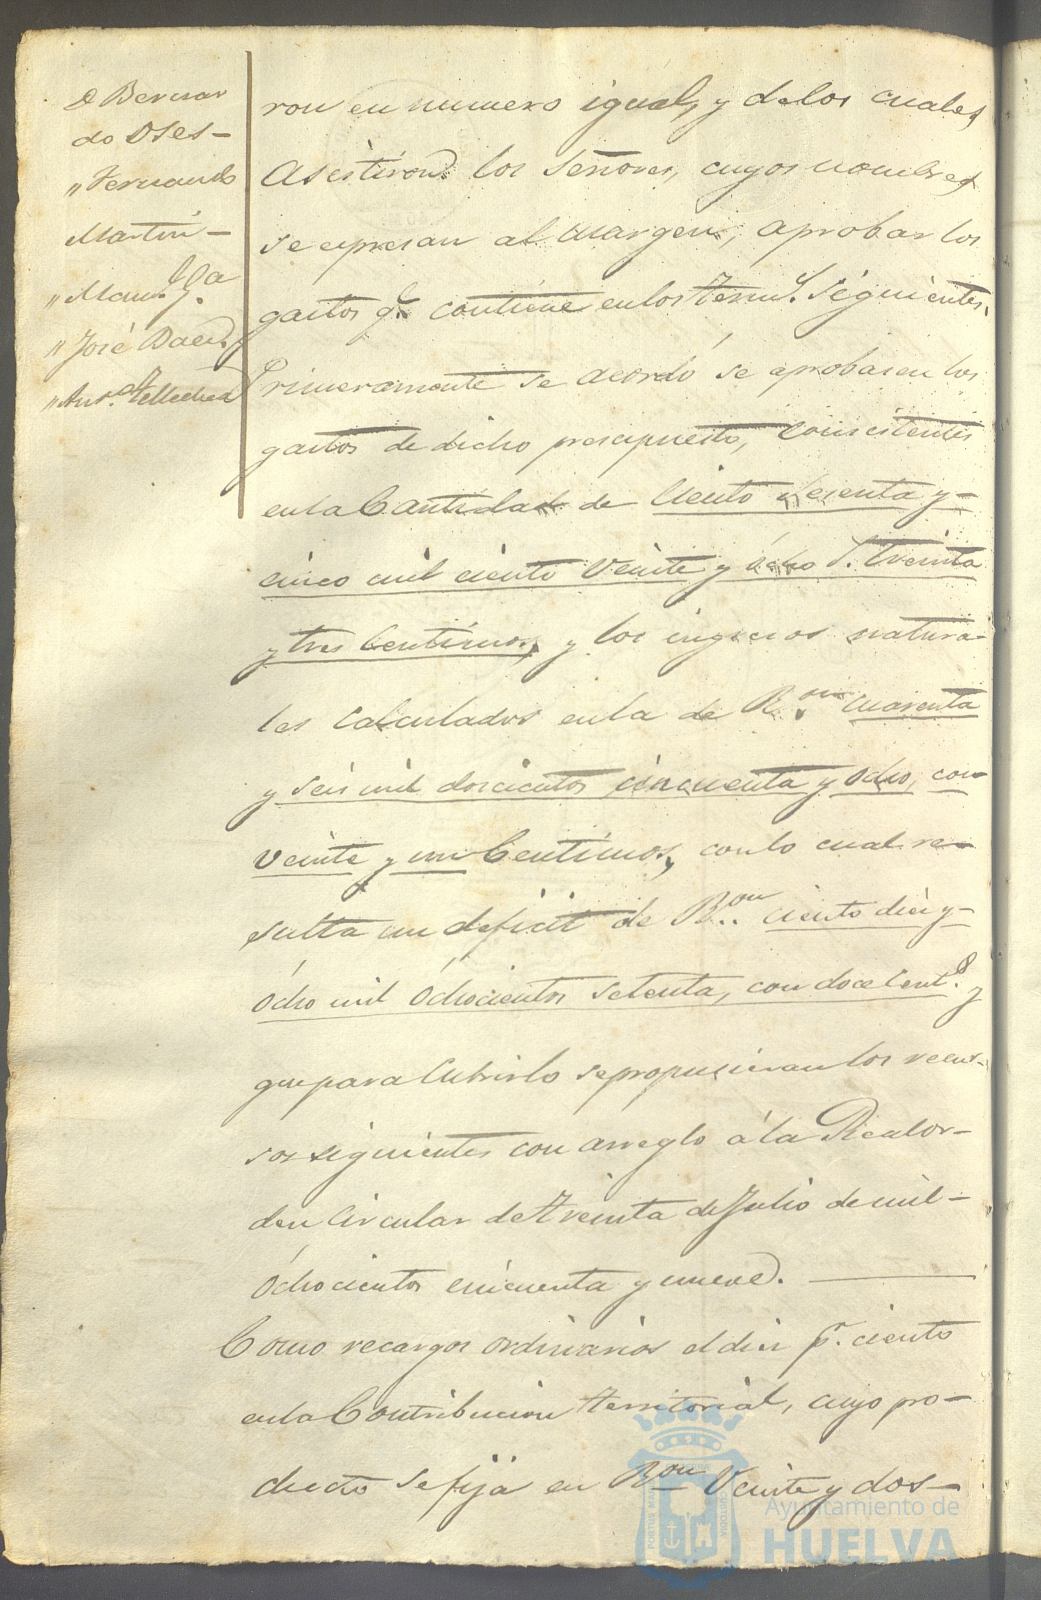 D Bernar
do Oses-
„ Fernando
Martin-
„ Man.l
„ José Baez
„ Ant.o
ron en numero igual, y de los cuales
Asistieron los Señores, cuyos nombres
se espresan al margen, aprobar los
gastos q.e contiene en los term.s Siguientes.
Primeramente se acordó se aprobasen los
gastos de dicho presupuesto, consistentes
en la Cantidad de Ciento Sesenta y-
cinco mil ciento Veinte y ócho r.s treinta
y tres Centimos, y los ingresos natura-
les Calculados en la de R.on cuarenta
y seis mil doscientos cincuenta y Ocho, con
veinte y un Centimos, con lo cual re-
sulta un deficit de R.on ciento diez y-
ócho mil óchocientos setenta, con doce Cent.s y
que para Cubrirlo se propusieran los recur-
sos siguientes con arreglo á la Real or-
den Circular de treinta de Julio de mil-
óchocientos cincuenta y nueve.
Como recargos ordinarios el diez p.r ciento
en la Contribucion territorial, cuyo pro-
ducto se fija en R.on Veinte y dos-
Ayuntamiento de
HUELVA